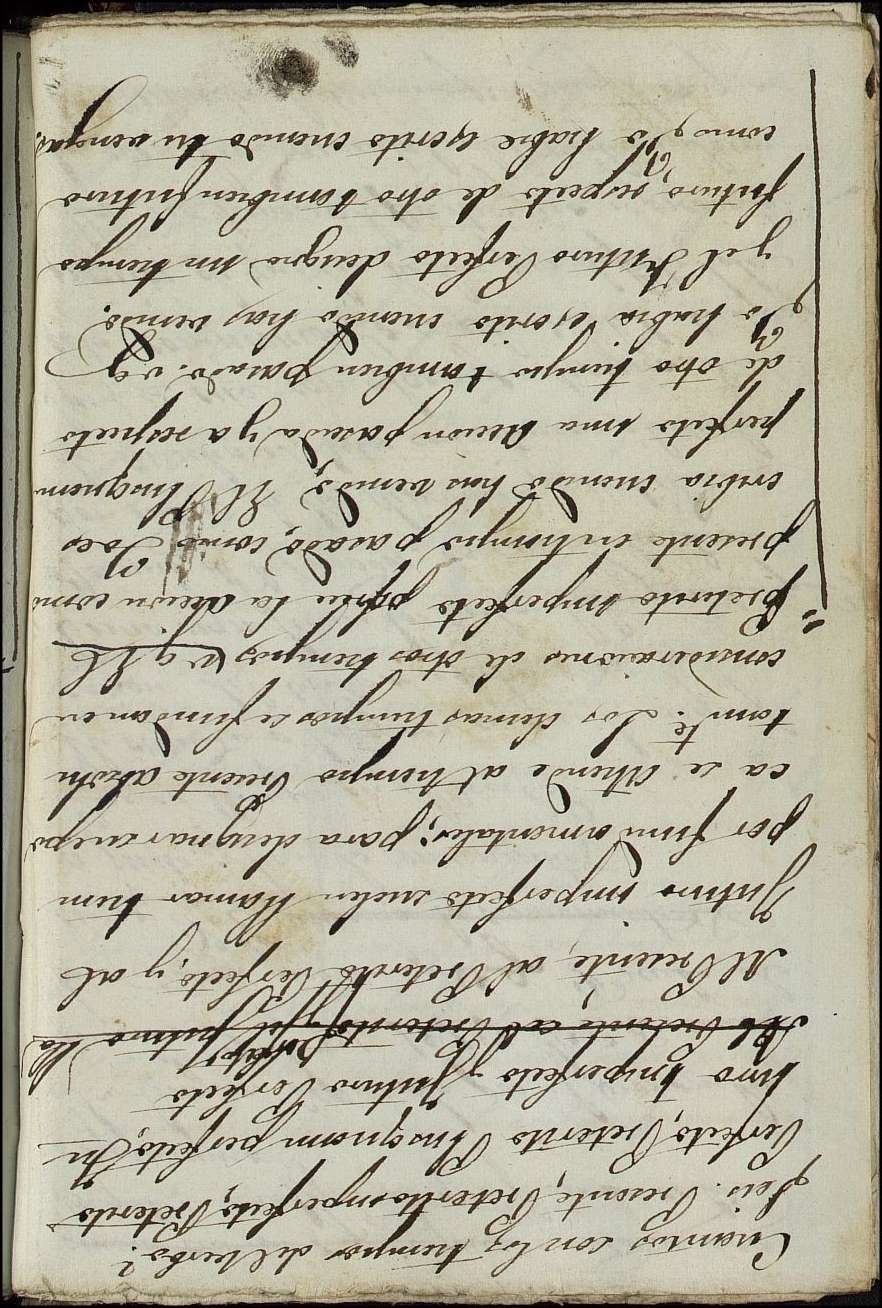 Cuantos son los tiempos del verbo?
Seis. Presente, Preterito imperfecto, Preterito
Perfecto, Preterito Plusquam perfecto, Fu
turo Imperfecto y Futuro Perfecto
Al Presente al Preterito y Futuro
Al Presente, al Preterito Perfecto, y al
Futuro imperfecto suelen llamar tiem
pos fundamentales; para designar cuya epo
ca se atiende al tiempo Presente absolu
tamte. Los demas tiempos se fundan en
consideraciones de otros tiempos v g El
Preterito Imperfecto ofrece la accion como
presente en tiempo pasado, como Yo es
cribia cuando has venido, El Plusquam
perfecto una accion pasada ya respecto
de otro tiempo tambien pasado. v g
Yo habia escrito cuando has venido.
y el Futuro Perfecto designa un tiempo
futuro, respecto de otro tambien futuro
como Yo habre escrito cuando tu vengas.